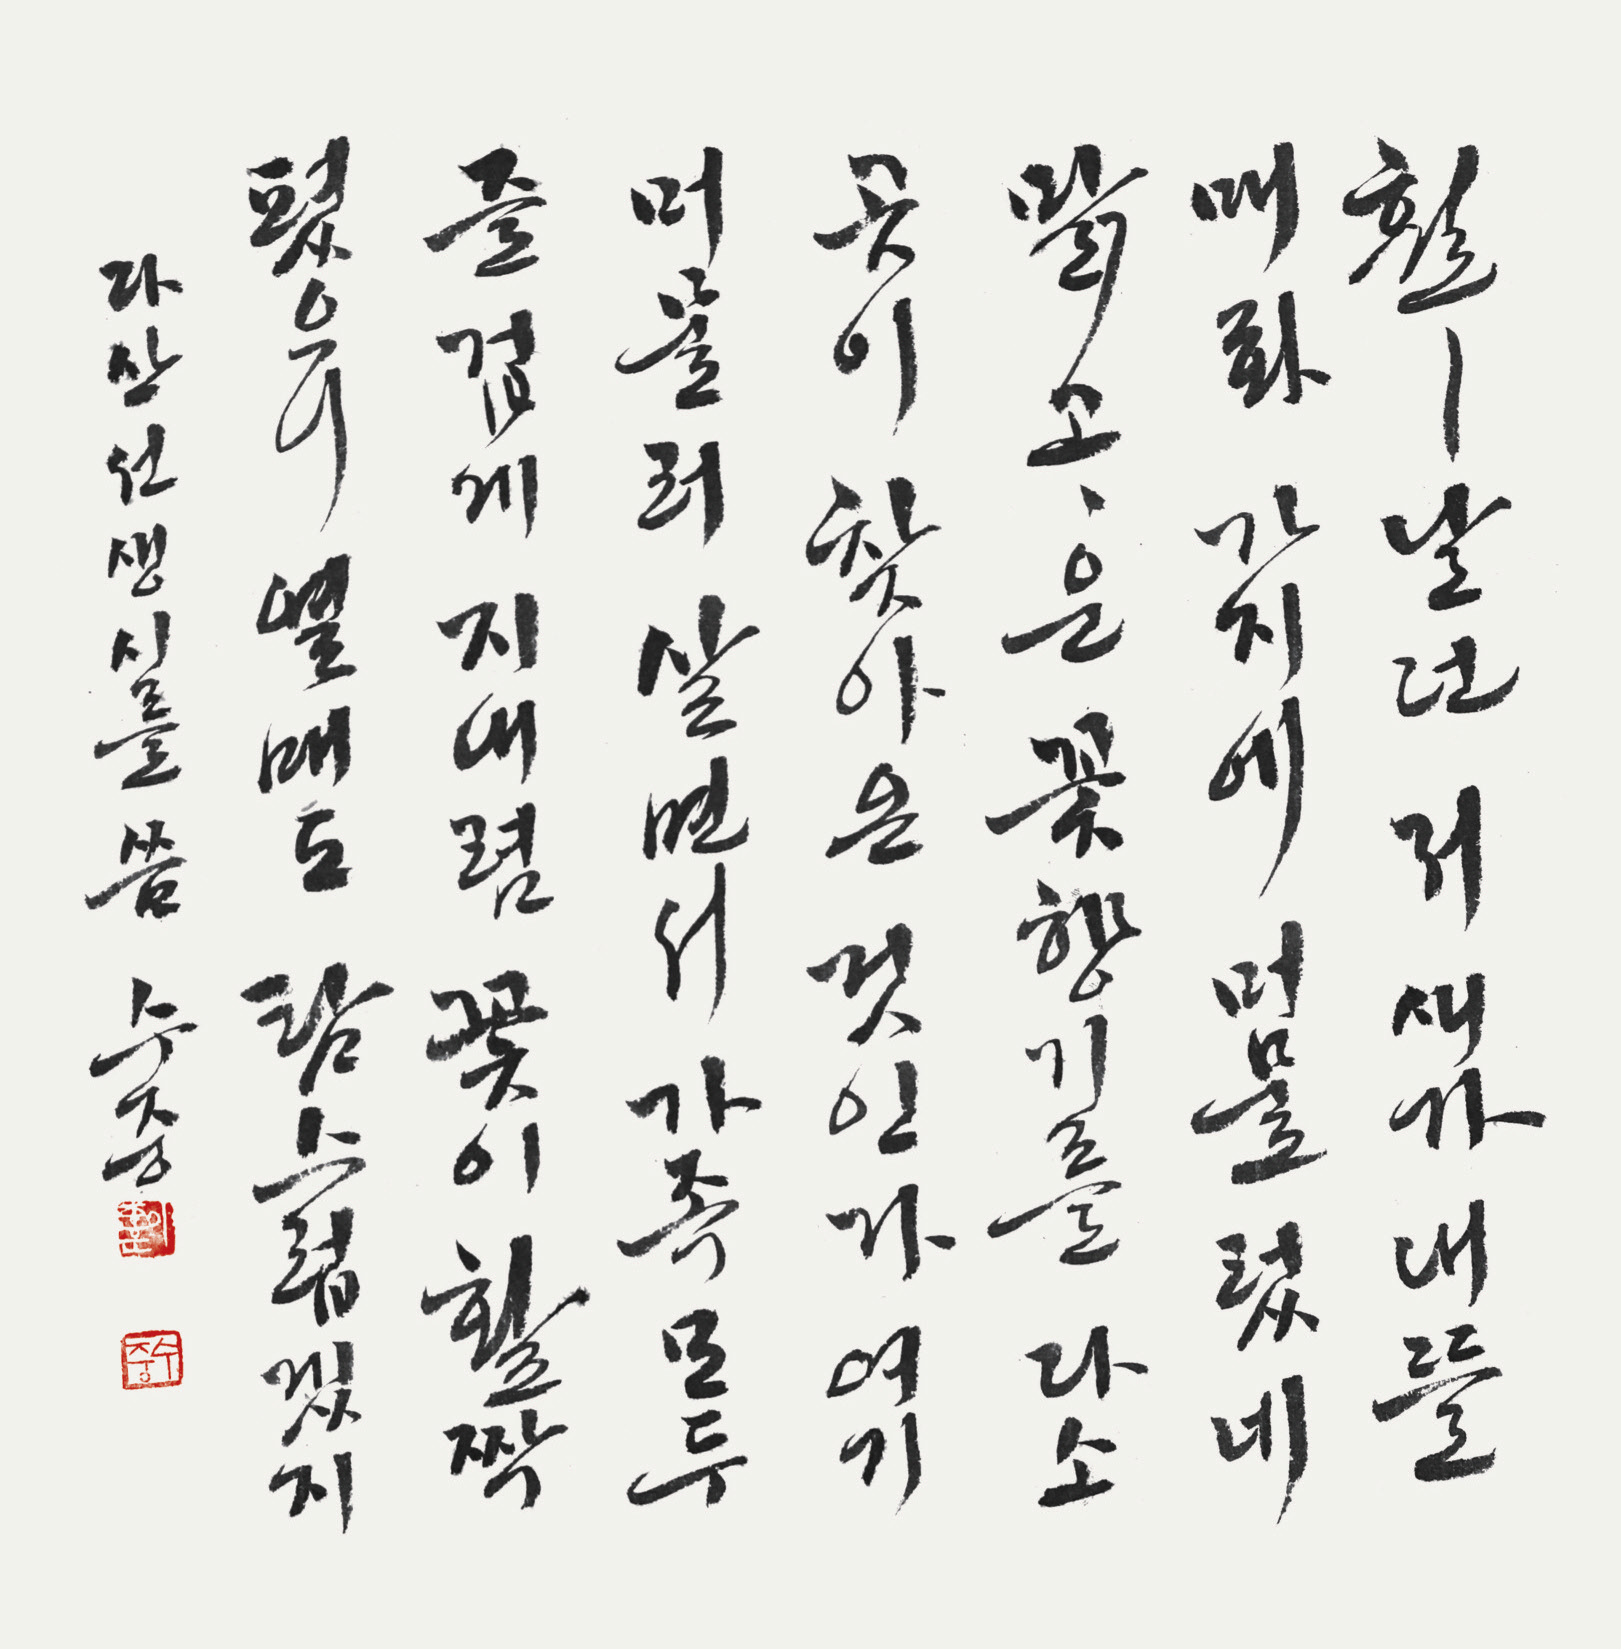 훨〡날던 저 새가 내 뜰
매화 가지에 머물렀네
맑고〻은 꽃향기를 다소
곳이 찾아온 것인가 여기
머물러 살면서 가족 모두
즐겁게 지내렴 꽃이 활짝
폈으니 열매도 탐스럽겠지
다산선생 시를 씀 수중
수중